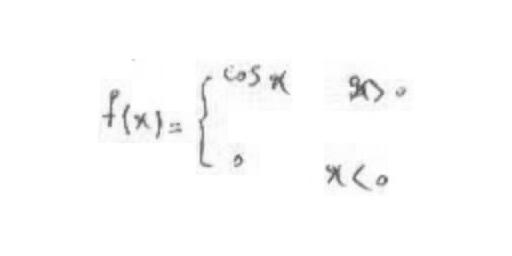 f(x) = { cos x x > 0
0 x < 0